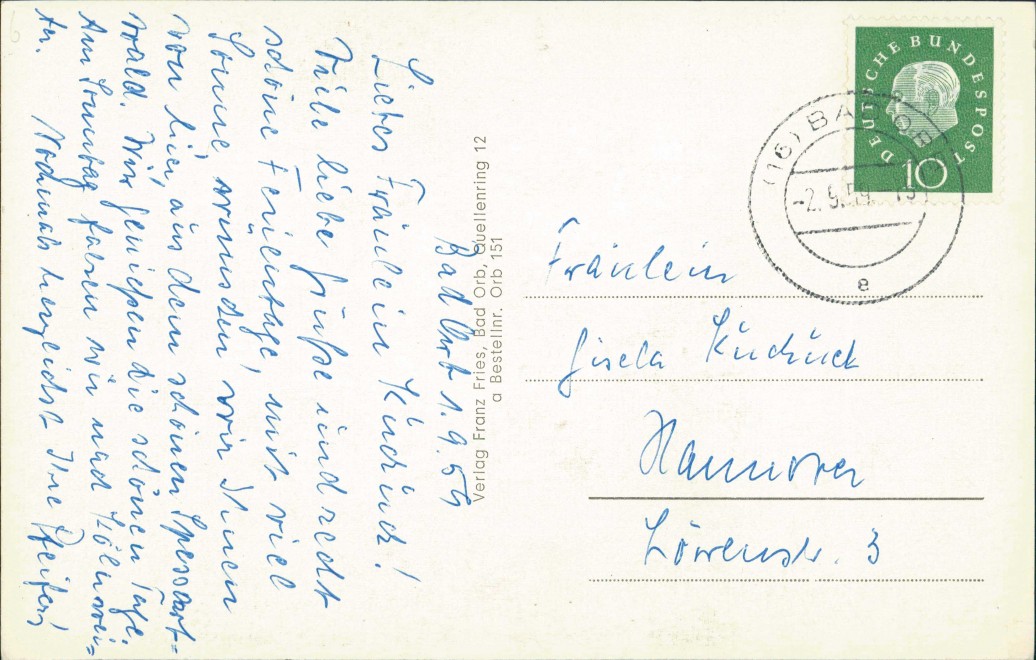 Bad Orb 1.9.59
Liebes Fräulein Kuckuck!
Viele liebe Grüße und recht
schöne Ferientage, mit viel
Sonne, wünschen wir Ihnen
von hier, aus dem schönen Spessart-
wald. Wir genießen die schönen Tage.
Am Sonntag fahren wir nach
Nochmals herzlichst Ihre Pfeifers!
Verlag Franz Fries, Bad Orb, Quellenring 12
a Bestellnr. Orb 151
DEUTSCHE BUNDESPOST
10
(16) BAD ORB
-2.9.59.-19
e
Fräulein
Gisela Kuckuck
Hannover
Löwenstr. 3